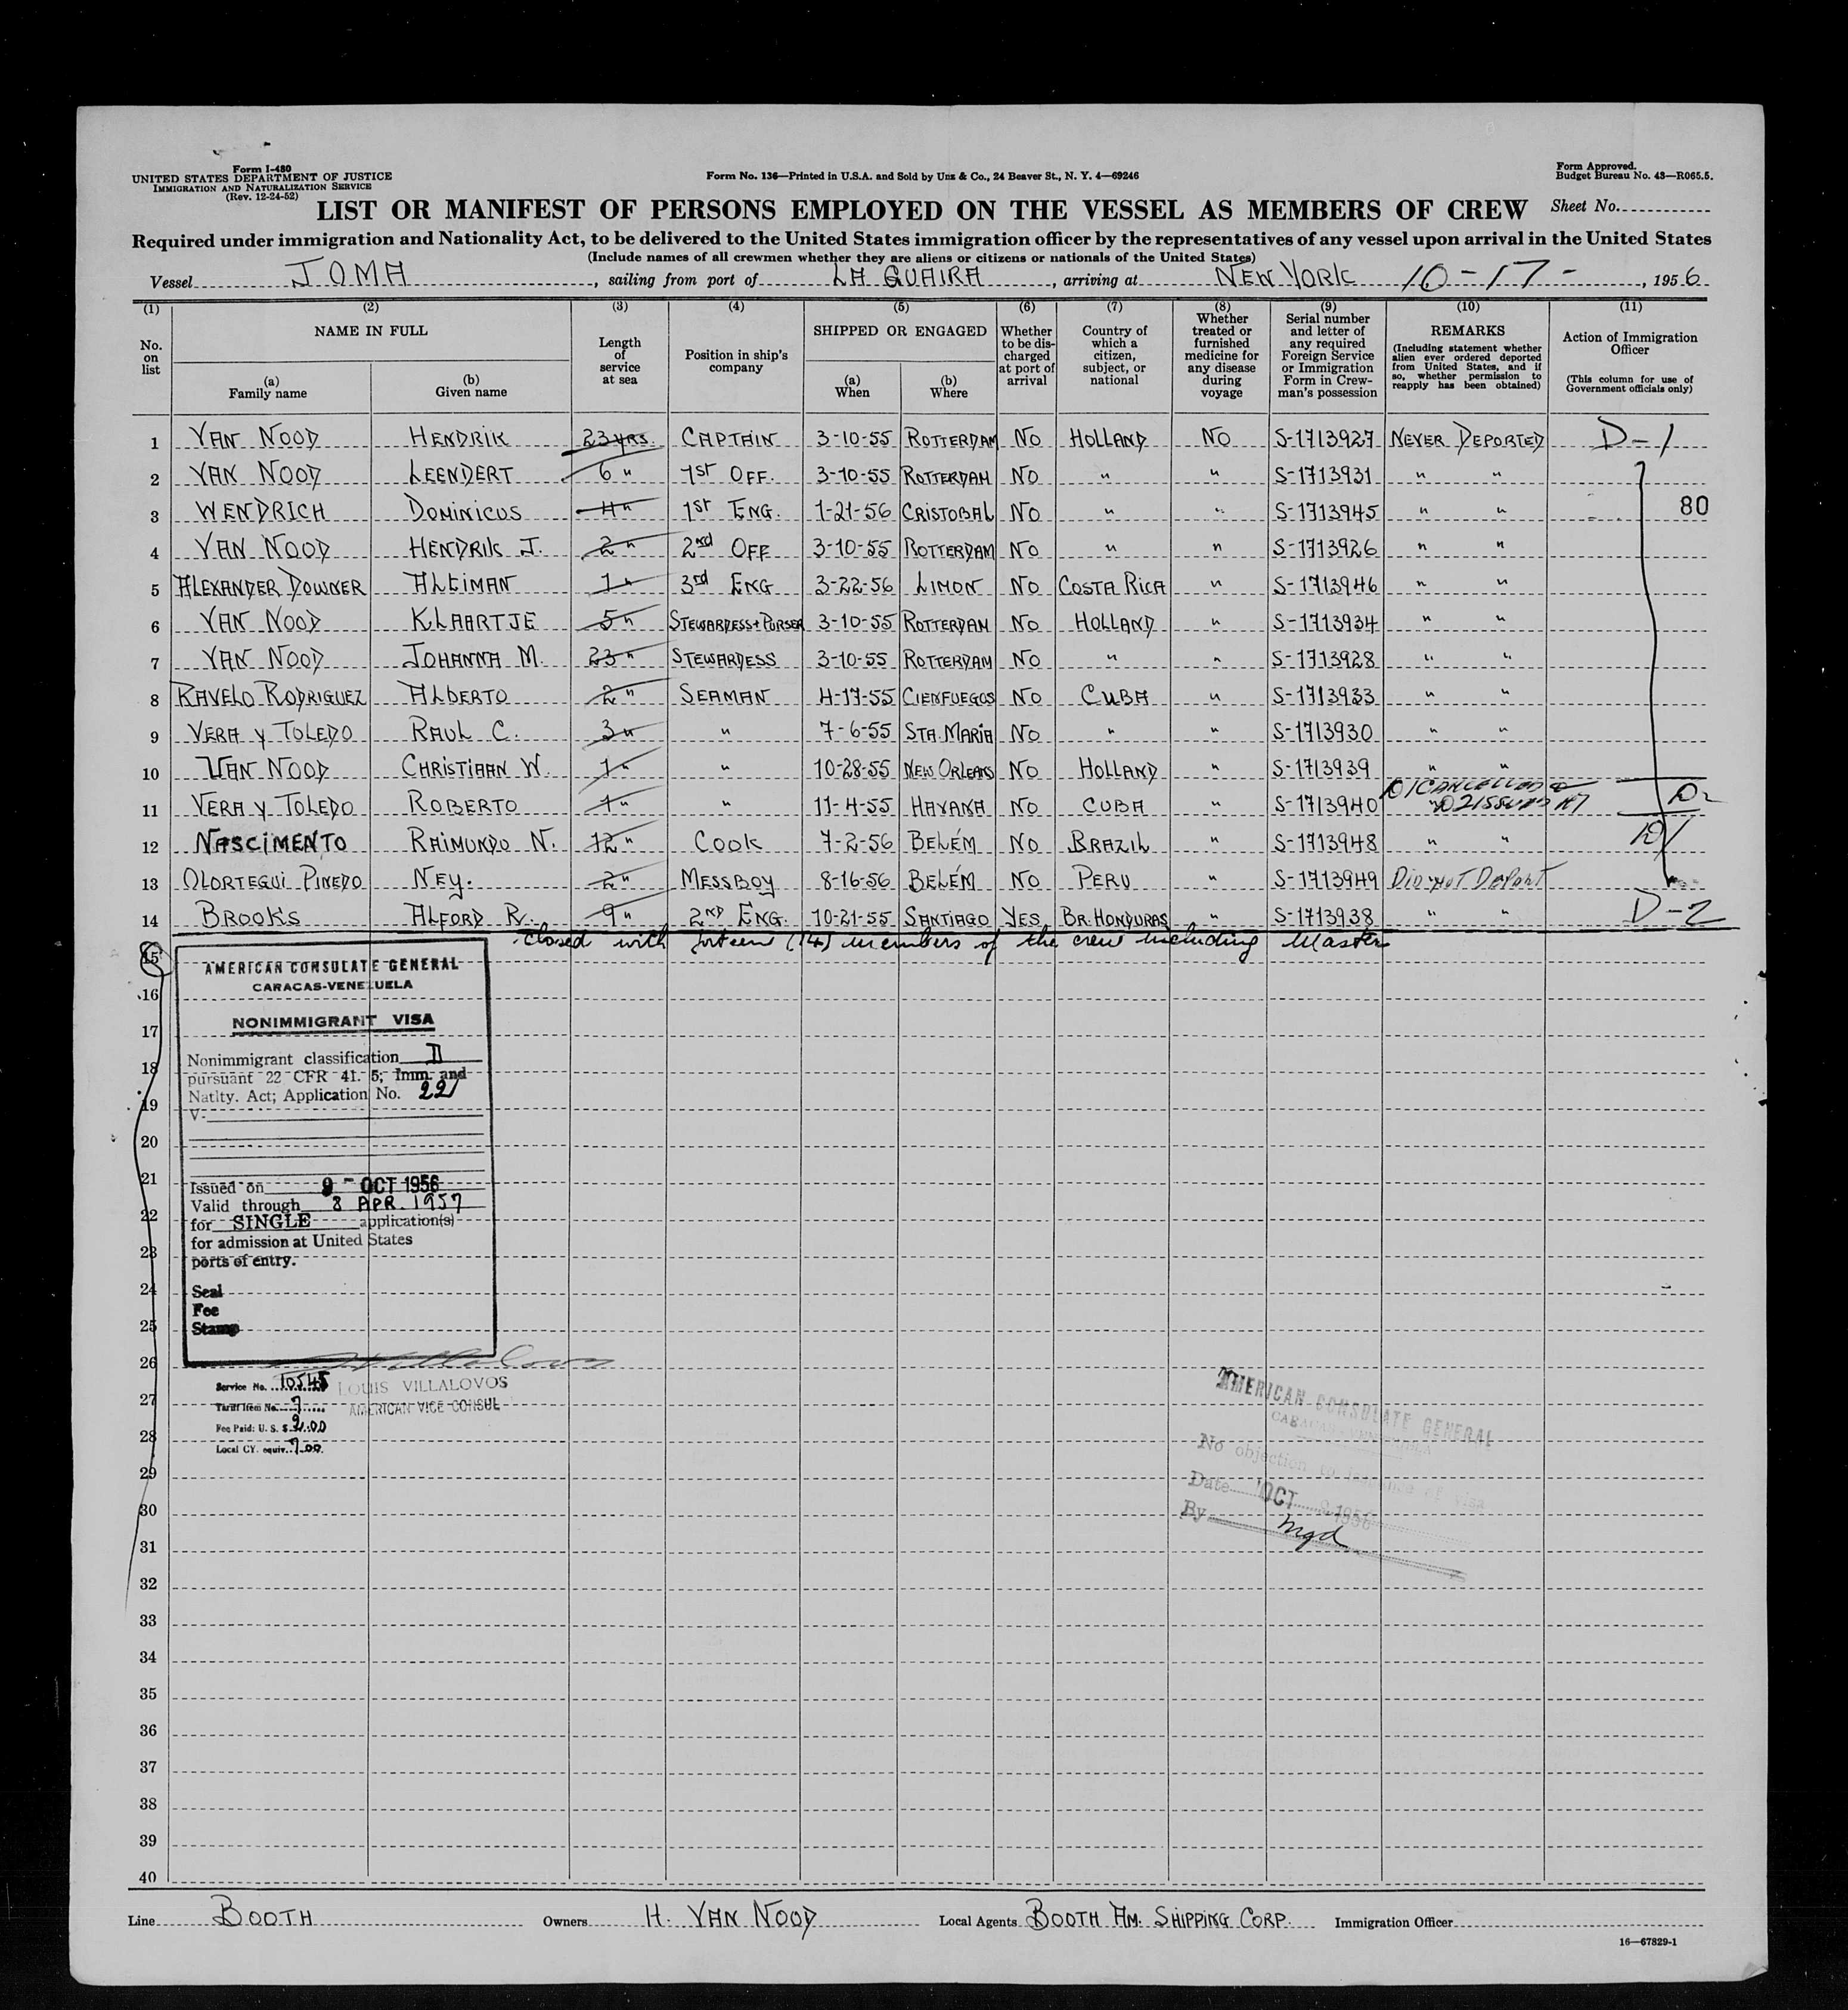 Form I-480
UNITED STATES DEPARTMENT OF JUSTICE
IMMIGRATION AND NATURALIZATION SERVICE
(Rev. 12-24-52)
Form No. 136—Printed in U.S.A. and Sold by Unz & Co., 24 Beaver St., N. Y. 4—69246
Form Approved.
Budget Bureau No. 43—R065.5.
LIST OR MANIFEST OF PERSONS EMPLOYED ON THE VESSEL AS MEMBERS OF CREW Sheet No.
Required under immigration and Nationality Act, to be delivered to the United States immigration officer by the representatives of any vessel upon arrival in the United States
(Include names of all crewmen whether they are aliens or citizens or nationals of the United States)
Vessel JOMA, sailing from port of LA GUAIRA, arriving at NEW YORK 10-17-, 1956
(1) (2) (3) (4) (5) (6) (7) (8) (9) (10) (11)
No. on list
NAME IN FULL
(a) Family name
(b) Given name
Length of service at sea
Position in ship's company
SHIPPED OR ENGAGED
(a) When
(b) Where
Whether to be discharged at port of arrival
Country of which a citizen, subject, or national
Whether treated or furnished medicine for any disease during voyage
Serial number and letter of any required Foreign Service or Immigration Form in Crewman's possession
REMARKS
(Including statement whether alien ever ordered deported from United States, and if so, whether permission to reapply has been obtained)
Action of Immigration Officer
(This column for use of Government officials only)
1 VAN NOOD HENDRIK 23 YRS. CAPTAIN 3-10-55 ROTTERDAM NO HOLLAND NO S-1713927 NEVER DEPORTED D-1
2 VAN NOOD LEENDERT 6 " 1ST OFF. 3-10-55 ROTTERDAM NO " " S-1713931 " "
3 WENDRICH DOMINICUS 4 " 1ST ENG. 1-21-56 CRISTOBAL NO " " S-1713945 " " 80
4 VAN NOOD HENDRIK J. 2 " 2nd OFF 3-10-55 ROTTERDAM NO " " S-1713926 " "
5 ALEXANDER DOWNER ALEIMAN 1 " 3rd ENG 3-22-56 LIMON NO COSTA RICA " S-1713946 " "
6 VAN NOOD KLAARTJE 5 " STEWARDESS+PURSER 3-10-55 ROTTERDAM NO HOLLAND " S-1713934 " "
7 VAN NOOD JOHANNA M. 23 " STEWARDESS 3-10-55 ROTTERDAM NO " " S-1713928 " "
8 RAVELO RODRIGUEZ ALBERTO 2 " SEAMAN 4-17-55 CIENFUEGOS NO CUBA " S-1713933 " "
9 VERA y TOLEDO RAUL C. 3 " " 7-6-55 STA. MARIA NO " " S-1713930 " "
10 VAN NOOD CHRISTIAAN W. 1 " " 10-28-55 NEW ORLEANS NO HOLLAND " S-1713939 " "
11 VERA y TOLEDO ROBERTO 1 " " 11-4-55 HAVANA NO CUBA " S-1713940 D1 CANCELLED D2 ISSUED D2
12 NASCIMENTO RAIMUNDO N. 12 " COOK 7-2-56 BELÉM NO BRAZIL " S-1713948 " " D1
13 OLORTEGUI PINEDO NEY. 2 " MESSBOY 8-16-56 BELÉM NO PERU " S-1713949 DID NOT DEPART
14 BROOKS ALFORD R. 9 " 2ND ENG. 10-21-55 SANTIAGO YES BR. HONDURAS " S-1713938 " " D-2
closed with forteen (14) members of the crew including Master
15
AMERICAN CONSULATE GENERAL
CARACAS-VENEZUELA
16
NONIMMIGRANT VISA
17
Nonimmigrant classification D
18
pursuant 22 CFR 41. 5; Imm. and
Natlty. Act; Application No. 221
19
V-
20
21
Issued on 9 - OCT 1956
Valid through 8 APR. 1957
22
for SINGLE application(s)
for admission at United States
23
ports of entry.
24
Seal
Fee
25
Stamp
26
Service No. 10545
LOUIS VILLALOVOS
27
Tariff Item No. 7
AMERICAN VICE CONSUL
Fee Paid: U. S. $ 2.00
28
Local CY. equiv. 7.00
AMERICAN CONSULATE GENERAL
CARACAS-VENEZUELA
No objection to issuance of visa
29
Date OCT 1956
30
By mgd
31
32
33
34
35
36
37
38
39
40
Line BOOTH Owners H. VAN NOOD Local Agents BOOTH AM. SHIPPING CORP. Immigration Officer
16—67829-1